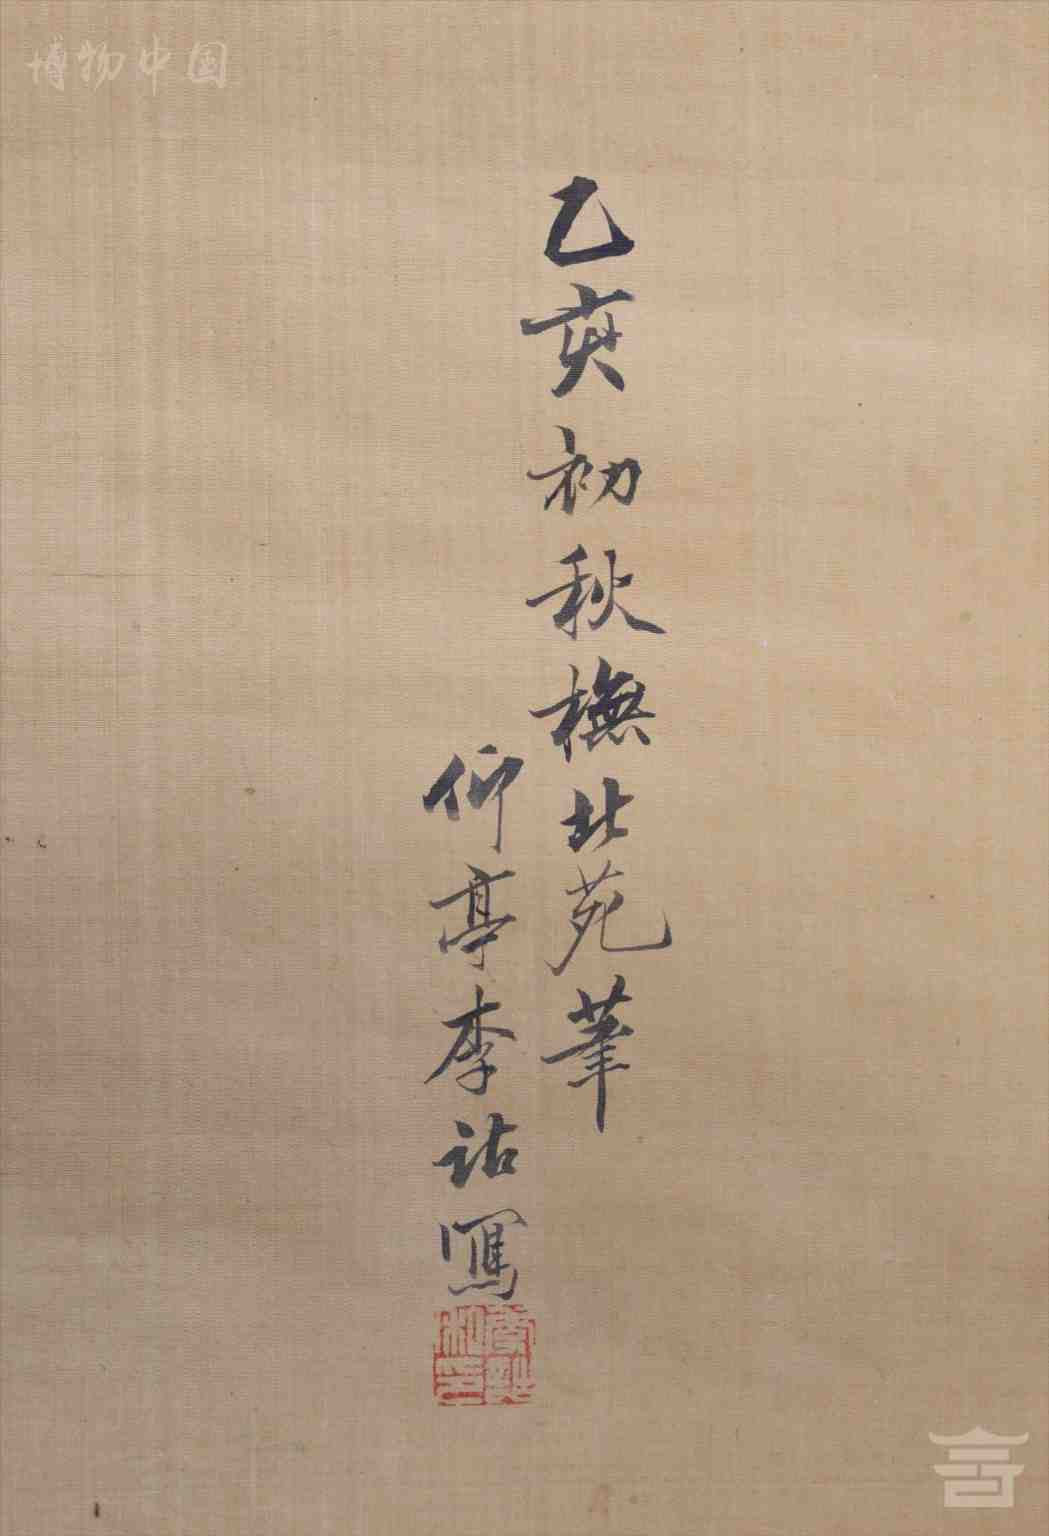 博物中国
乙亥初秋橅北苑筆
仰亭李詁寫